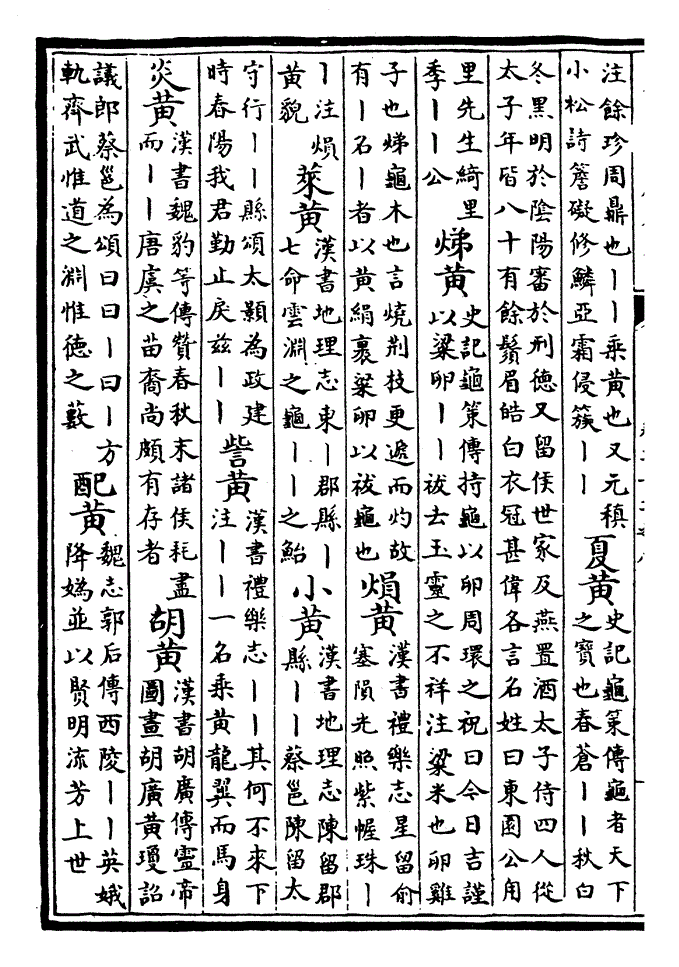 注餘珍周鼎也丨丨乘黃也又元稹小松詩簷礙修鱗亞霜侵簇丨丨 夏黃 史記龜策傳龜者天下之寶也春蒼丨丨秋白
冬黑明於陰陽審於刑德又留侯世家及燕置酒太子侍四人從太子年皆八十有餘鬚眉皓白衣冠甚偉各言名姓曰東園公甪
里先生綺里季丨丨公 焍黃 史記龜策傳持龜以卵周環之祝曰今日吉謹以粱卵丨丨祓去玉靈之不祥注粱米也卵雞
子也焍龜木也言燒荆枝更遞而灼故有丨名丨者以黃絹裹粱卵以祓龜也 熉黃 漢書禮樂志星留俞塞隕光照紫幄珠丨
丨注熉黃貌 萊黃 漢書地理志東丨郡縣丨七命雲淵之龜丨丨之鮐 小黃 漢書地理志陳留郡縣丨丨蔡邕陳留太
守行丨丨縣頌太顥為政建時春陽我君勤止戾兹丨丨 訾黃 漢書禮樂志丨丨其何不來下注丨丨一名乘黃龍翼而馬身
炎黃 漢書魏豹等傳贊春秋末諸侯耗盡而丨丨唐虞之苗裔尚頗有存者 胡黃 漢書胡廣傳靈帝圖畫胡廣黃瓊詔
議郎蔡邕為頌曰曰丨曰丨方軌齊武惟道之淵惟德之藪 配黃 魏志郭后傳西陵丨丨英娥降媯並以賢明流芳上世